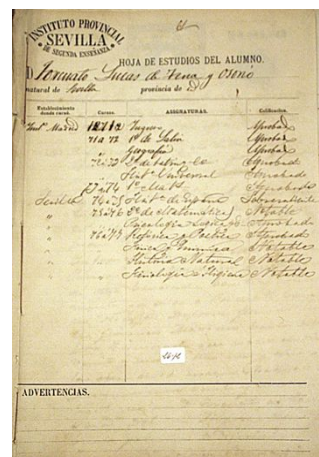 INSTITUTO PROVINCIAL
SEVILLA
DE SEGUNDA ENSEÑANZA
HOJA DE ESTUDIOS DEL ALUMNO.
D. Lucas de Tena y Osorio
natural de Sevilla provincia de id
Establecimiento donde cursó. Cursos. ASIGNATURAS. Calificación.
Madrid Aprobado
71 á 72 1º de Latin Aprobado
" Geografia Aprobado
72 á 73 2º de Latin Aprobado
" Universal Aprobado
73 á 74 1º Aprobado
Sevilla 74 á 75 de España Sobresaliente
" 75 á 76 2º de Matematicas Notable
" Psicologia Aprobado
" 76 á 77 Retorica y Poetica Aprobado
" Fisica y Quimica Notable
" Historia Natural Notable
" Fisiologia e Higiene Notable
ADVERTENCIAS.